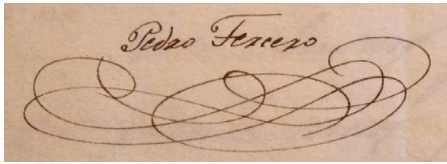 Pedro Tercero